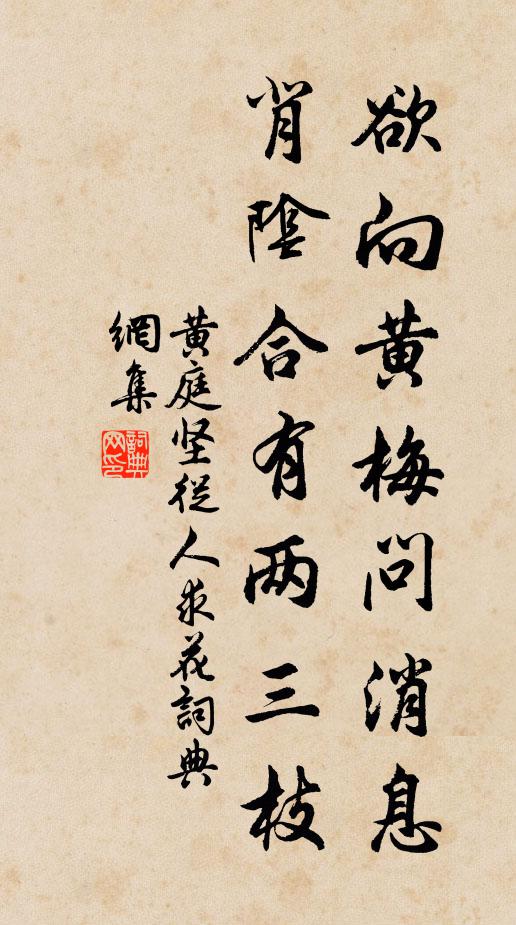 欲向黄梅問消息
背陰合有两三枝
黄庭坚從人求花詞典
網集
詞典网印